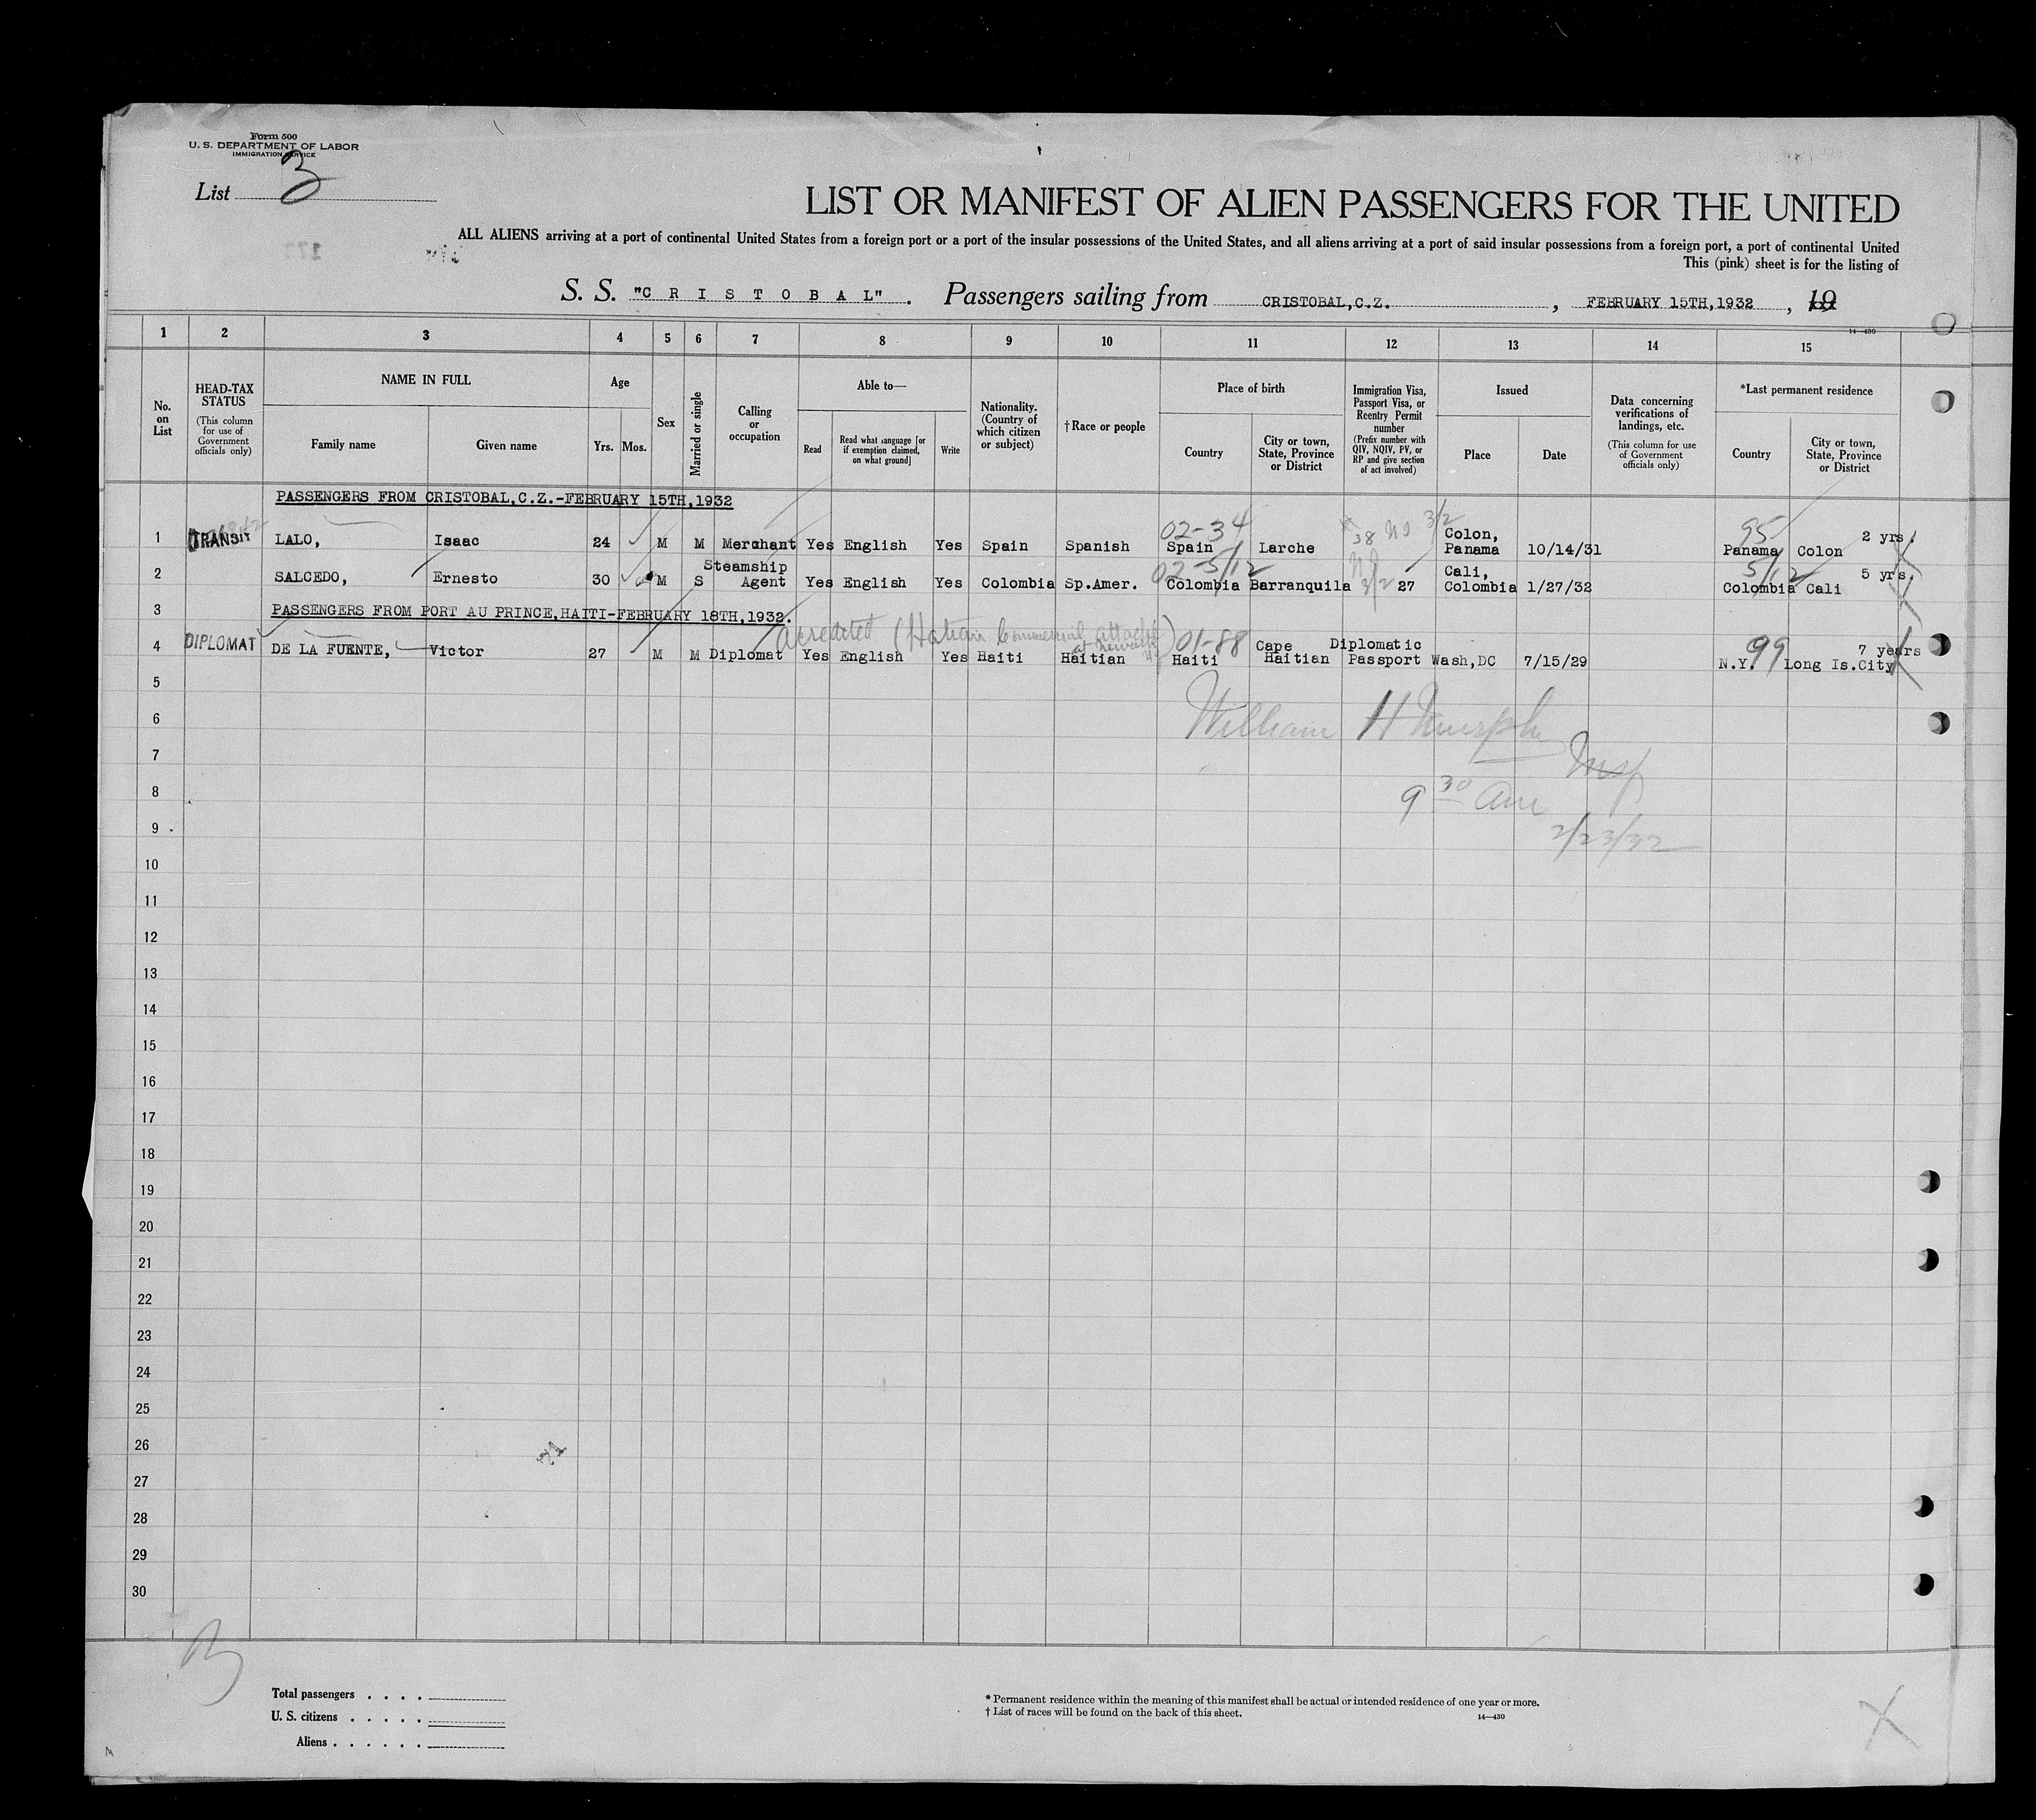 Form 500
U. S. DEPARTMENT OF LABOR
IMMIGRATION SERVICE
List 3
LIST OR MANIFEST OF ALIEN PASSENGERS FOR THE UNITED
ALL ALIENS arriving at a port of continental United States from a foreign port or a port of the insular possessions of the United States, and all aliens arriving at a port of said insular possessions from a foreign port, a port of continental United
This (pink) sheet is for the listing of
S. S. "C R I S T O B A L". Passengers sailing from CRISTOBAL,C.Z. , FEBRUARY 15TH,1932 , 19
14—430
1 2 3 4 5 6 7 8 9 10 11 12 13 14 15
No. on List
HEAD-TAX STATUS
(This column for use of Government officials only)
NAME IN FULL
Family name Given name
Age
Yrs. Mos.
Sex
Married or single
Calling or occupation
Able to—
Read
Read what language [or if exemption claimed, on what ground]
Write
Nationality. (Country of which citizen or subject)
†Race or people
Place of birth
Country
City or town, State, Province or District
Immigration Visa, Passport Visa, or Reentry Permit number
(Prefix number with QIV, NQIV, PV, or RP and give section of act involved)
Issued
Place Date
Data concerning verifications of landings, etc.
(This column for use of Government officials only)
*Last permanent residence
Country
City or town, State, Province or District
PASSENGERS FROM CRISTOBAL,C.Z.-FEBRUARY 15TH,1932
02-34 3/2 95
1 TRANSIT LALO, Isaac 24 M M Merchant Yes English Yes Spain Spanish Spain Larche 38 Colon, Panama 10/14/31 Panama Colon 2 yrs.
02-5/12 5/12
2 SALCEDO, Ernesto 30 M S Steamship Agent Yes English Yes Colombia Sp.Amer. Colombia Barranquila 27 Cali, Colombia 1/27/32 Colombia Cali 5 yrs.
3 PASSENGERS FROM PORT AU PRINCE,HAITI-FEBRUARY 18TH,1932.
acredited (Hatian Commercial attache
01-88 99
4 DIPLOMAT DE LA FUENTE, Victor 27 M M Diplomat Yes English Yes Haiti Haitian Haiti Cape Haitian Diplomatic Passport Wash,DC 7/15/29 N.Y. Long Is.City 7 years
5
6 William H Murphy
7 Insp
8 9 30 am
9 2/23/32
10
11
12
13
14
15
16
17
18
19
20
21
22
23
24
25
26
27
28
29
30
Total passengers . . . .
U. S. citizens . . . . .
Aliens . . . . . .
* Permanent residence within the meaning of this manifest shall be actual or intended residence of one year or more.
† List of races will be found on the back of this sheet.
14—430